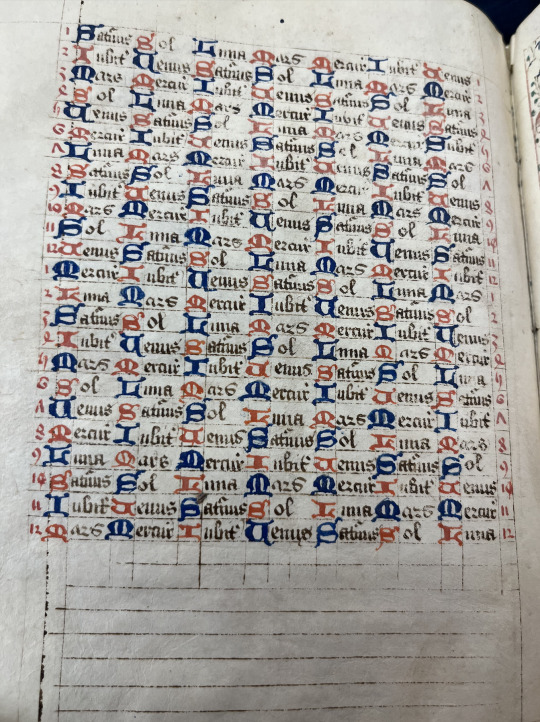 1 Satnus Sol Luna Mars Mercur Iubit Venus 1
2 Iubit Venus Satnus Sol Luna Mars Mercur 2
3 Mars Mercur Iubit Venus Satnus Sol Luna 3
4 Sol Luna Mars Mercur Iubit Venus Satnus 4
5 Venus Satnus Sol Luna Mars Mercur Iubit 5
6 Mercur Iubit Venus Satnus Sol Luna Mars 6
7 Luna Mars Mercur Iubit Venus Satnus Sol 7
8 Satnus Sol Luna Mars Mercur Iubit Venus 8
9 Iubit Venus Satnus Sol Luna Mars Mercur 9
10 Mars Mercur Iubit Venus Satnus Sol Luna 10
11 Sol Luna Mars Mercur Iubit Venus Satnus 11
12 Venus Satnus Sol Luna Mars Mercur Iubit 12
1 Mercur Iubit Venus Satnus Sol Luna Mars 1
2 Luna Mars Mercur Iubit Venus Satnus Sol 2
3 Satnus Sol Luna Mars Mercur Iubit Venus 3
4 Iubit Venus Satnus Sol Luna Mars Mercur 4
5 Mars Mercur Iubit Venus Satnus Sol Luna 5
6 Sol Luna Mars Mercur Iubit Venus Satnus 6
7 Venus Satnus Sol Luna Mars Mercur Iubit 7
8 Mercur Iubit Venus Satnus Sol Luna Mars 8
9 Luna Mars Mercur Iubit Venus Satnus Sol 9
10 Satnus Sol Luna Mars Mercur Iubit Venus 10
11 Iubit Venus Satnus Sol Luna Mars Mercur 11
12 Mars Mercur Iubit Venus Satnus Sol Luna 12